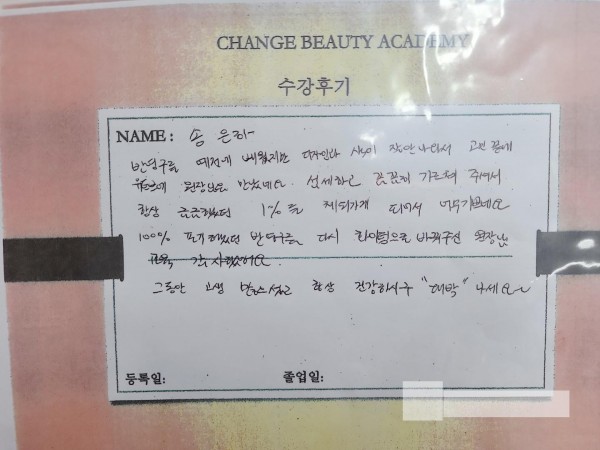 CHANGE BEAUTY ACADEMY
수강후기
NAME : 송은하
반영구를 예전에 배웠지만 디자인과 색이 잘 안나와서 고민 끝에
원장님을 만났네요 섬세하고 꼼꼼히 가르쳐 주셔서
항상 궁금했던 1%를 채워가게 되어서 너무 기쁘네요
100% 포기했었던 반영구를 다시 화이팅으로 바꿔주신 원장님
교육 감사했어요
그동안 고생 많으셨고 항상 건강하시구 "대박" 나세요~
등록일:
졸업일: